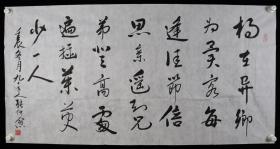 獨在异鄉
为异客每
逢佳節倍
思亲遥知兄
弟登高處
遍插茱萸
少一人